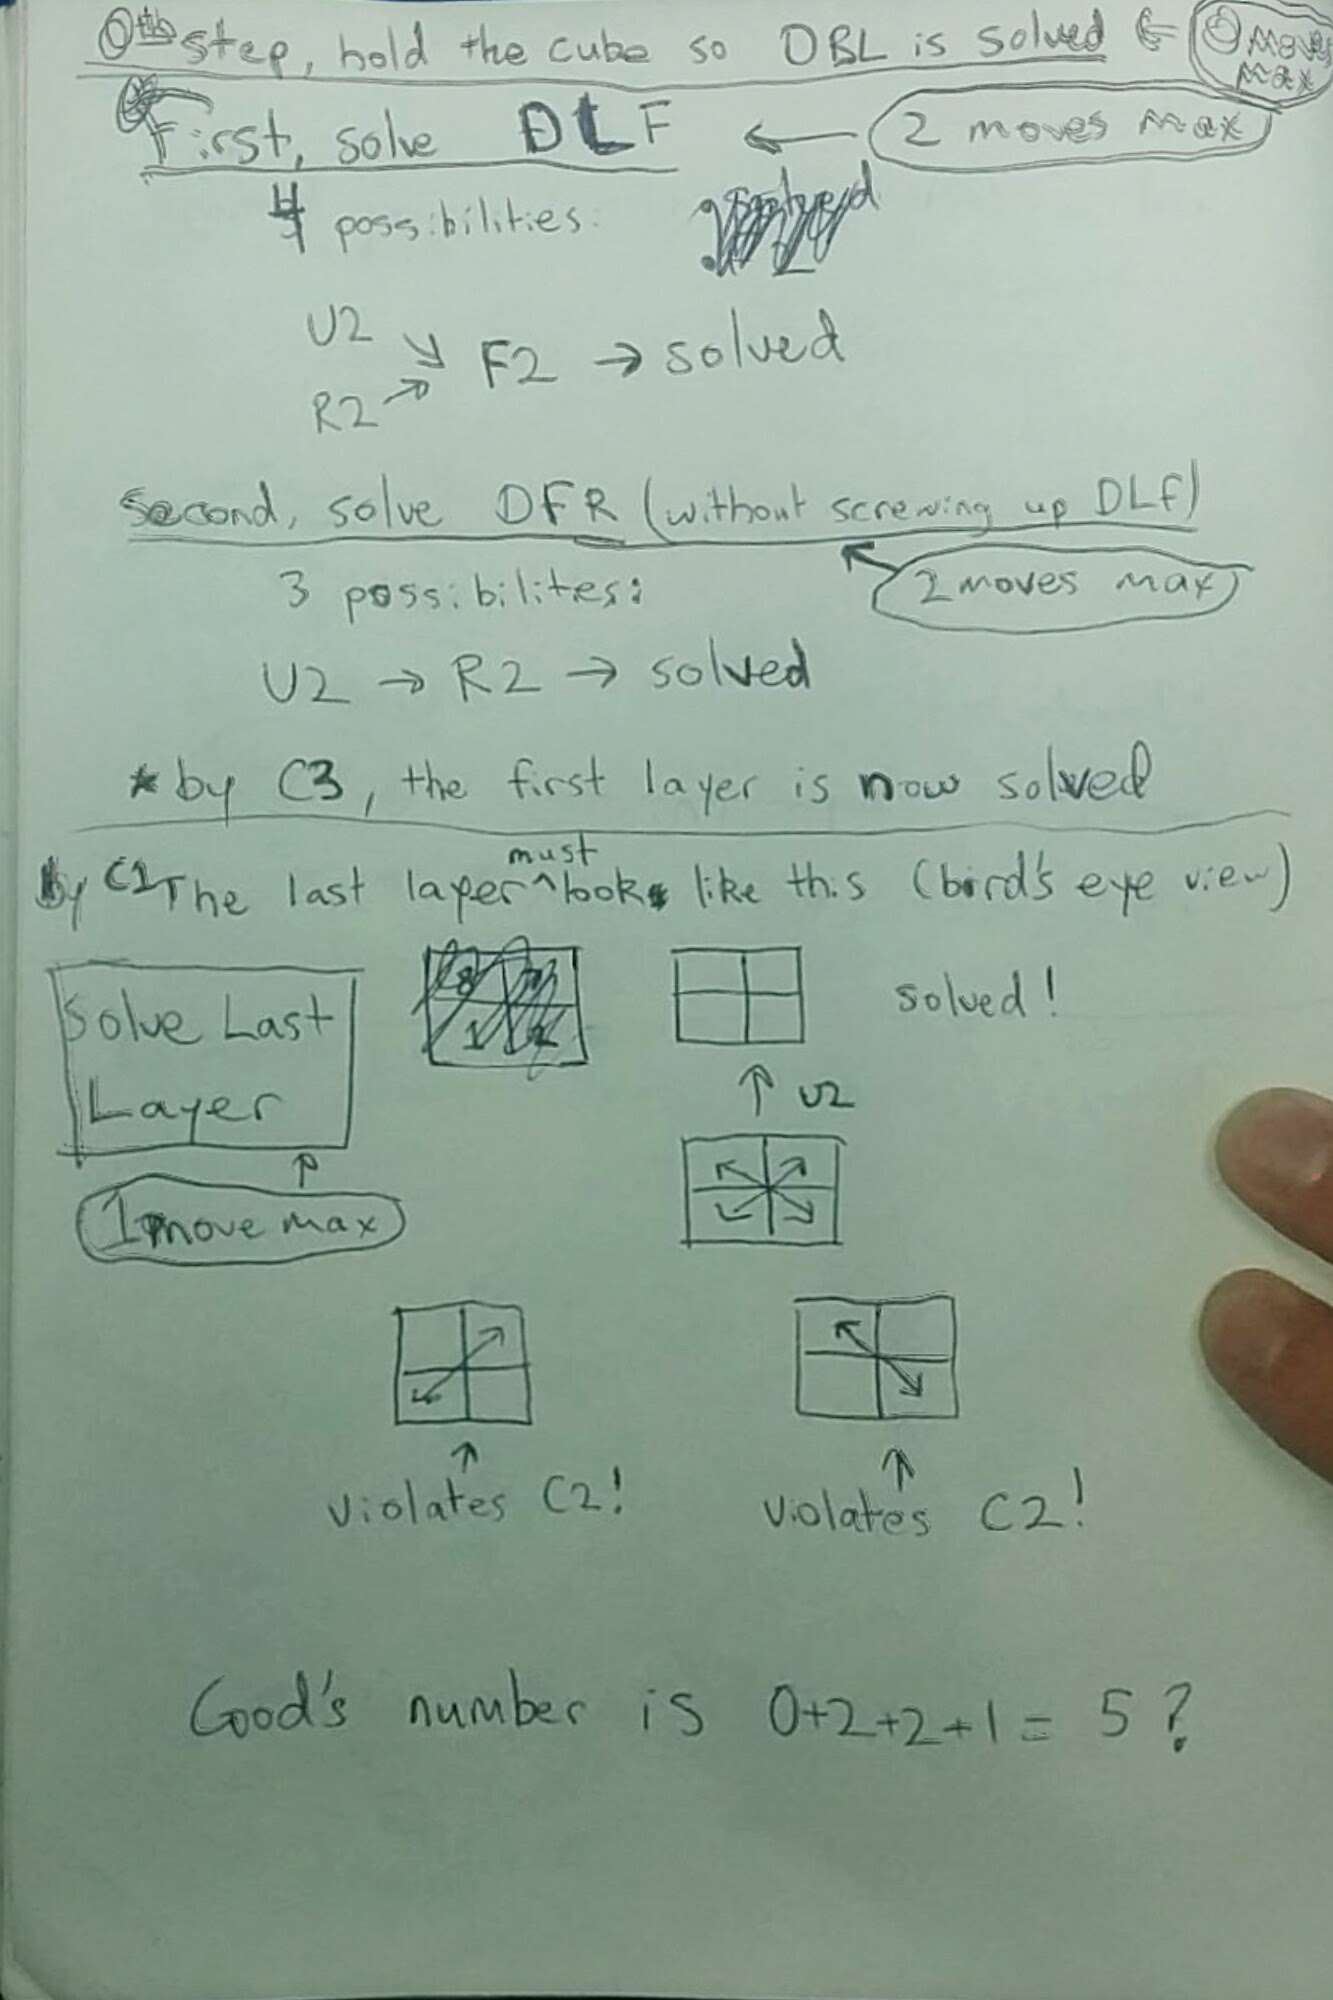 0th step, hold the cube so DBL is solved ← 0 moves max
First, solve DLF ← 2 moves max
4 possibilities:
U2
F2 → solved
R2
Second, solve DFR (without screwing up DLF)
3 possibilites:
2 moves max
U2 → R2 → solved
* by C3, the first layer is now solved
By C1 The last layer must look like this (bird's eye view)
Solve Last
Layer
solved!
↑ U2
1 move max
violates C2!
violates C2!
Good's number is 0+2+2+1 = 5?